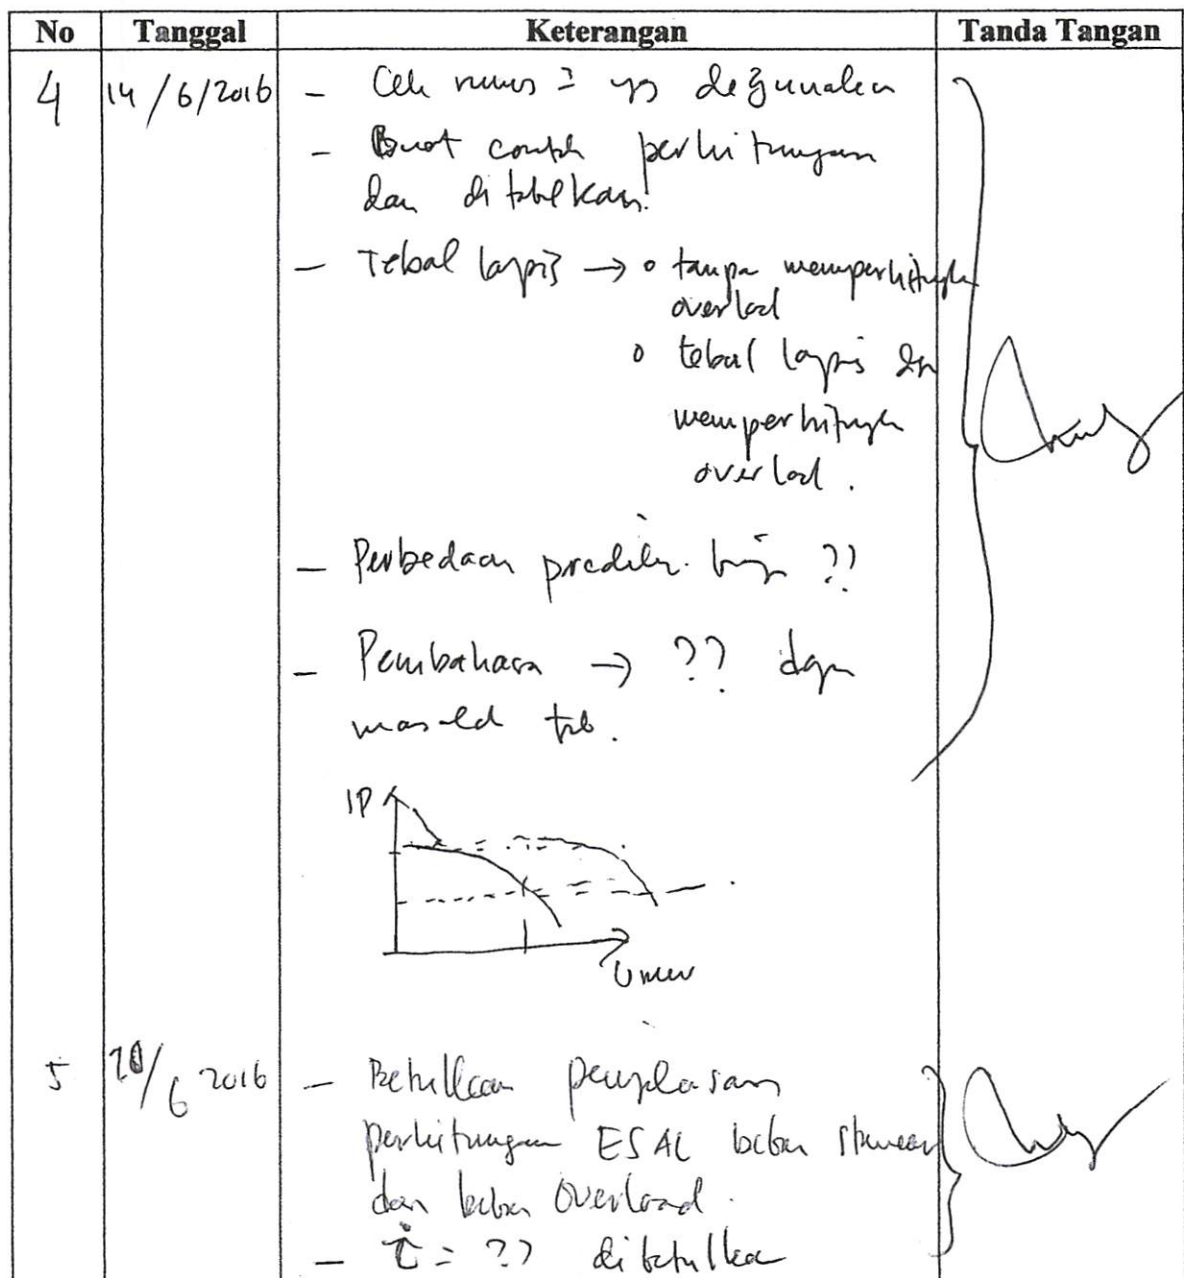 No Tanggal Keterangan Tanda Tangan
4 14/6/2016 - Cek rumus2 yg digunakan
- Buat contoh perhitungan
dan ditabelkan.
- Tebal lapis → o tanpa memperhitungkan
overload
o tebal lapis dgn
memperhitungkan
overload.
- Perbedaan prediksi ??
- Pembahasan → ?? dgn
masalah tsb.
IP
Umur
5 /6 2016 - Betulkan penjelasan
perhitungan ESAL beban standar
dan beban Overload.
- i = ?? dibetulkan